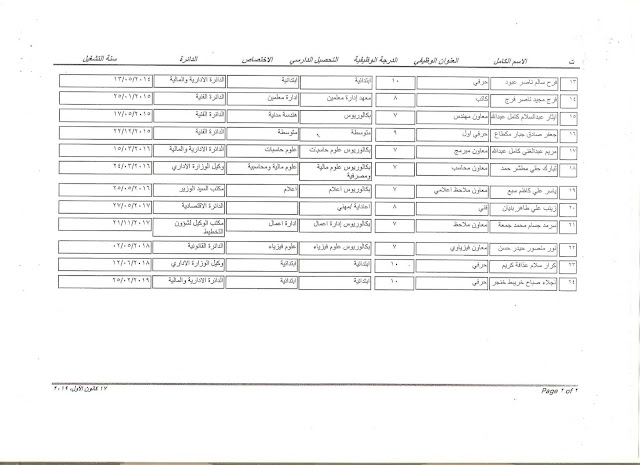 ت الاسم الكامل العنوان الوظيفي الدرجة الوظيفية التحصيل الدارسي الاختصاص الدائرة سنة التشغيل
١٣ فرح سالم ناصر عبود حرفي ١٠ ابتدائية ابتدائية الدائرة الادارية والمالية ١٣/٠٥/٢٠١٤
١٤ فرح مجيد ناصر فرج كاتب ٨ معهد إدارة معلمين ادارة معلمين الدائرة الفنية ٢٥/٠١/٢٠١٥
١٥ ايثار عبدالسلام كامل عبدالله معاون مهندس ٧ بكالوريوس هندسة مدنية الدائرة الفنية ١٧/٠٥/٢٠١٥
١٦ جعفر صادق جبار مكطاع حرفي اول ٩ متوسطة متوسطة الدائرة الفنية ٢٢/١٢/٢٠١٥
١٧ مريم عبدالغني كامل عبدالله معاون مبرمج ٧ بكالوريوس علوم حاسبات علوم حاسبات الدائرة الادارية والمالية ١٥/٠٢/٢٠١٦
١٨ تبارك حلي مطشر حمد معاون محاسب ٧ بكالوريوس علوم مالية ومصرفية علوم مالية ومحاسبية وكيل الوزارة الاداري ٢٤/٠٣/٢٠١٦
١٩ ياسر علي كاظم سبع معاون ملاحظ اعلامي ٧ بكالوريوس اعلام اعلام مكتب السيد الوزير ٢٥/٠٥/٢٠١٦
٢٠ زينب علي طاهر بديان فني ٨ اعدادية /مهني الدائرة الاقتصادية ٢٧/٠٥/٢٠١٧
٢١ سرمد حسام محمد جمعة معاون ملاحظ ٧ بكالوريوس إدارة اعمال ادارة اعمال مكتب الوكيل لشؤون التخطيط ٢١/١١/٢٠١٧
٢٢ نور منصور حيدر حسن معاون فيزياوي ٧ بكالوريوس علوم فيزياء علوم فيزياء الدائرة القانونية ٠٢/٠٥/٢٠١٨
٢٣ كرار سلام عذافة كريم حرفي ١٠ ابتدائية ابتدائية وكيل الوزارة الاداري ١٢/٠٦/٢٠١٨
٢٤ نجلاء صباح خريبط خنجر حرفي ١٠ ابتدائية ابتدائية الدائرة الادارية والمالية ٢٥/٠٢/٢٠١٩
١٧ كانون الأول، ٢٠١٩
Page ٢ of ٢